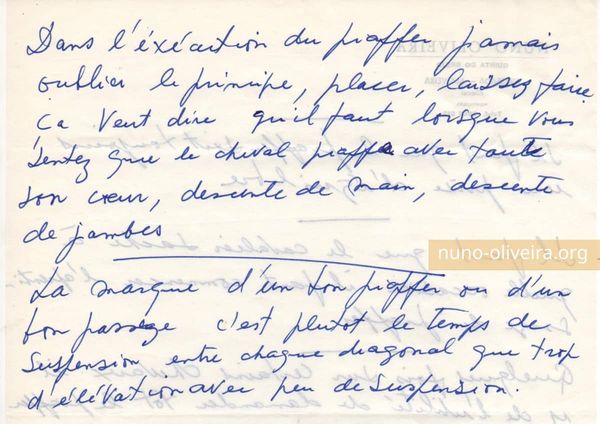 Dans l'éxécution du piaffer jamais
oublier le principe, placer, laissez faire
ça veut dire qu'il faut lorsque vous
sentez que le cheval piaffe avec toute
son cœur, descente de main, descente
de jambes
nuno-oliveira.org
La marque d'un bon piaffer ou d'un
bon passage c'est plutot le temps de
suspension entre chaque diagonal que trop
d'élévation avec peu de suspension.